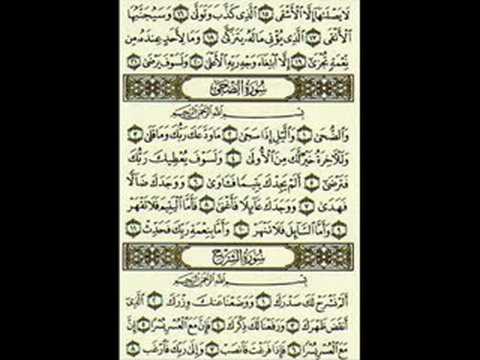 لَا يَصْلَىٰهَآ إِلَّا ٱلْأَشْقَى ١٥ ٱلَّذِى كَذَّبَ وَتَوَلَّىٰ ١٦ وَسَيُجَنَّبُهَا
ٱلْأَتْقَى ١٧ ٱلَّذِى يُؤْتِى مَالَهُۥ يَتَزَكَّىٰ ١٨ وَمَا لِأَحَدٍ عِندَهُۥ مِن
نِّعْمَةٍ تُجْزَىٰٓ ١٩ إِلَّا ٱبْتِغَآءَ وَجْهِ رَبِّهِ ٱلْأَعْلَىٰ ٢٠ وَلَسَوْفَ يَرْضَىٰ ٢١
سُورَةُ الضُّحَى
بِسْمِ ٱللَّهِ ٱلرَّحْمَٰنِ ٱلرَّحِيمِ
وَٱلضُّحَىٰ ١ وَٱلَّيْلِ إِذَا سَجَىٰ ٢ مَا وَدَّعَكَ رَبُّكَ وَمَا قَلَىٰ ٣
وَلَلْءَاخِرَةُ خَيْرٌ لَّكَ مِنَ ٱلْأُولَىٰ ٤ وَلَسَوْفَ يُعْطِيكَ رَبُّكَ
فَتَرْضَىٰٓ ٥ أَلَمْ يَجِدْكَ يَتِيمًا فَـَٔاوَىٰ ٦ وَوَجَدَكَ ضَآلًّا
فَهَدَىٰ ٧ وَوَجَدَكَ عَآئِلًا فَأَغْنَىٰ ٨ فَأَمَّا ٱلْيَتِيمَ فَلَا تَقْهَرْ
٩ وَأَمَّا ٱلسَّآئِلَ فَلَا تَنْهَرْ ١٠ وَأَمَّا بِنِعْمَةِ رَبِّكَ فَحَدِّثْ ١١
سُورَةُ الشَّرْحِ
بِسْمِ ٱللَّهِ ٱلرَّحْمَٰنِ ٱلرَّحِيمِ
أَلَمْ نَشْرَحْ لَكَ صَدْرَكَ ١ وَوَضَعْنَا عَنكَ وِزْرَكَ ٢ ٱلَّذِىٓ
أَنقَضَ ظَهْرَكَ ٣ وَرَفَعْنَا لَكَ ذِكْرَكَ ٤ فَإِنَّ مَعَ ٱلْعُسْرِ يُسْرًا ٥ إِنَّ
مَعَ ٱلْعُسْرِ يُسْرًا ٦ فَإِذَا فَرَغْتَ فَٱنصَبْ ٧ وَإِلَىٰ رَبِّكَ فَٱرْغَب ٨